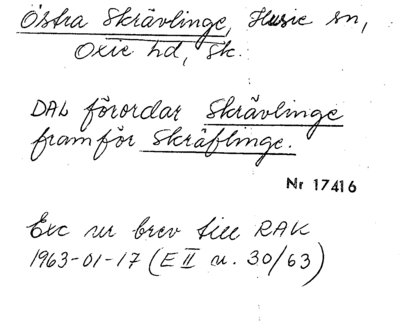 Östra Skrävlinge, Husie sn,
Oxie hd, Sk.
DAL förordar Skrävlinge
framför Skräflinge.
Nr 17416
Exc ur brev till RAK
1963-01-17 (E II u. 30/63)